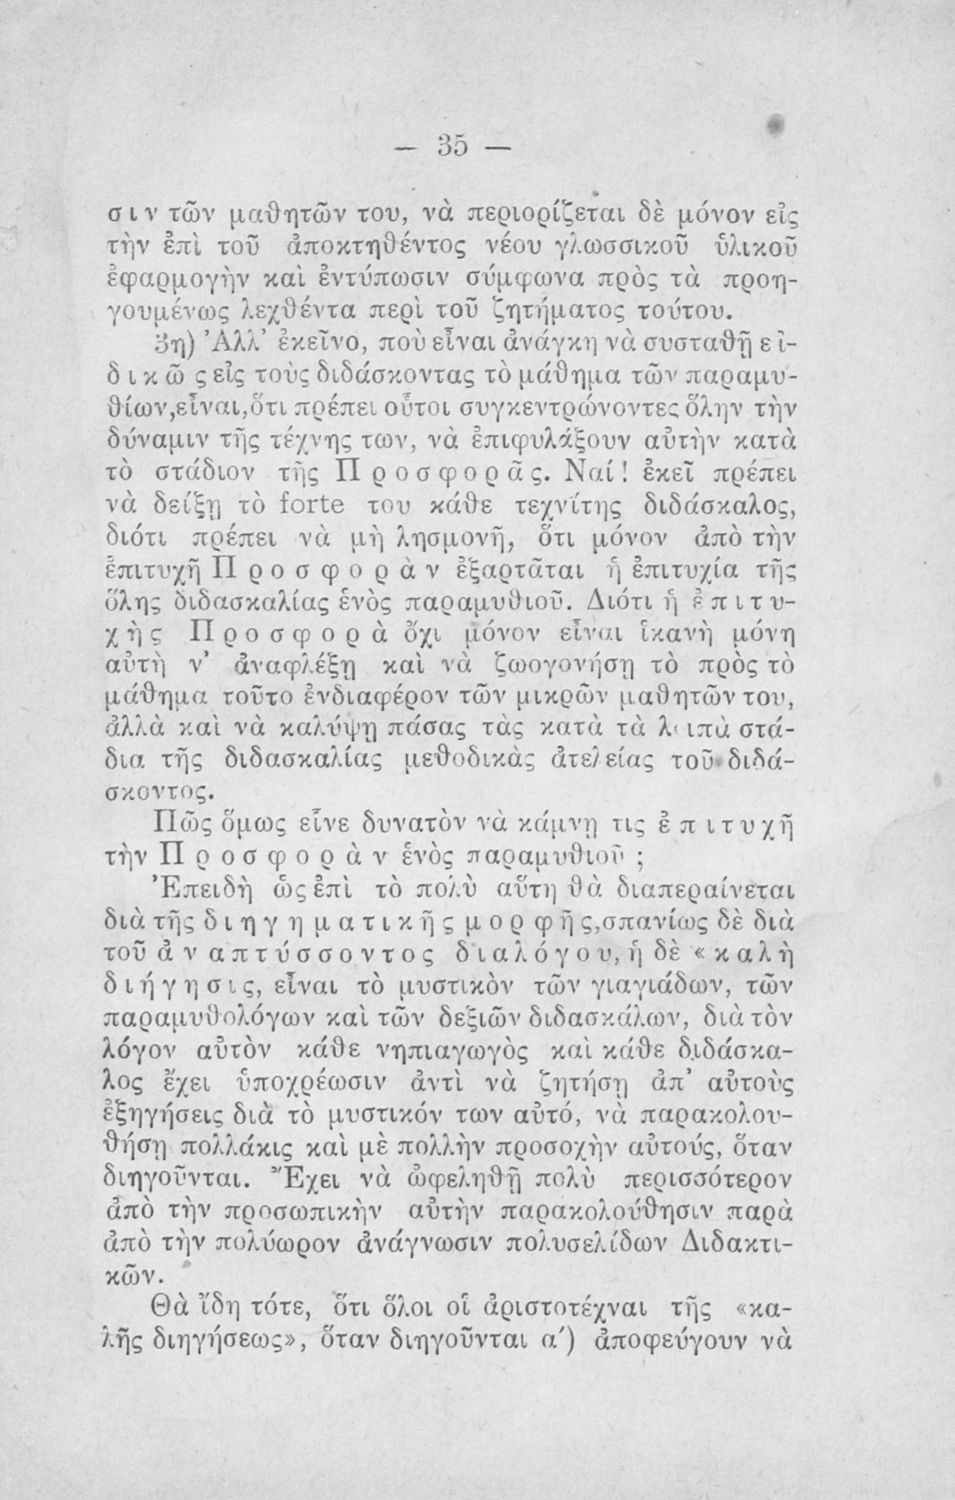 — 35 —
σ ι ν τῶν μαθητῶν του, νὰ περιορίζεται δὲ μόνον εἰς
τὴν ἐπὶ τοῦ ἀποκτηθέντος νέου γλωσσικοῦ ὑλικοῦ
ἐφαρμογὴν καὶ ἐντύπωσιν σύμφωνα πρὸς τὰ προη-
γουμένως λεχθέντα περὶ τοῦ ζητήματος τούτου.
3η) Ἀλλ’ ἐκεῖνο, ποὺ εἶναι ἀνάγκη νὰ συσταθῇ ε ἰ-
δ ι κ ῶ ς εἰς τοὺς διδάσκοντας τὸ μάθημα τῶν παραμυ-
θίων, εἶναι, ὅτι πρέπει οὗτοι συγκεντρώνοντες ὅλην τὴν
δύναμιν τῆς τέχνης των, νὰ ἐπιφυλάξουν αὐτὴν κατὰ
τὸ στάδιον τῆς Π ρ ο σ φ ο ρ ᾶ ς. Ναί! ἐκεῖ πρέπει
νὰ δείξῃ τὸ forte του κάθε τεχνίτης διδάσκαλος,
διότι πρέπει νὰ μὴ λησμονῇ, ὅτι μόνον ἀπὸ τὴν
ἐπιτυχῆ Π ρ ο σ φ ο ρ ὰ ν ἐξαρτᾶται ἡ ἐπιτυχία τῆς
ὅλης διδασκαλίας ἑνὸς παραμυθιοῦ. Διότι ἡ ἐ π ι τ υ-
χ ὴ ς Π ρ ο σ φ ο ρ ὰ ὄχι μόνον εἶναι ἱκανὴ μόνη
αὐτὴ ν’ ἀναφλέξῃ καὶ νὰ ζωογονήσῃ τὸ πρὸς τὸ
μάθημα τοῦτο ἐνδιαφέρον τῶν μικρῶν μαθητῶν του,
ἀλλὰ καὶ νὰ καλύψῃ πάσας τὰς κατὰ τὰ λοιπὰ στά-
δια τῆς διδασκαλίας μεθοδικὰς ἀτελείας τοῦ διδά-
σκοντος.
Πῶς ὅμως εἶνε δυνατὸν νὰ κάμνῃ τις ἐ π ι τ υ χ ῆ
τὴν Π ρ ο σ φ ο ρ ὰ ν ἑνὸς παραμυθιοῦ ;
Ἐπειδὴ ὡς ἐπὶ τὸ πολὺ αὕτη θὰ διαπεραίνεται
διὰ τῆς δ ι η γ η μ α τ ι κ ῆ ς μ ο ρ φ ῆ ς, σπανίως δὲ διὰ
τοῦ ἀ ν α π τ ύ σ σ ο ν τ ο ς δ ι α λ ό γ ο υ, ἡ δὲ « κ α λ ὴ
δ ι ή γ η σ ι ς, εἶναι τὸ μυστικὸν τῶν γιαγιάδων, τῶν
παραμυθολόγων καὶ τῶν δεξιῶν διδασκάλων, διὰ τὸν
λόγον αὐτὸν κάθε νηπιαγωγὸς καὶ κάθε διδάσκα-
λος ἔχει ὑποχρέωσιν ἀντὶ νὰ ζητήσῃ ἀπ’ αὐτοὺς
ἐξηγήσεις διὰ τὸ μυστικόν των αὐτό, νὰ παρακολου-
θήσῃ πολλάκις καὶ μὲ πολλὴν προσοχὴν αὐτούς, ὅταν
διηγοῦνται. Ἔχει νὰ ὠφεληθῇ πολὺ περισσότερον
ἀπὸ τὴν προσωπικὴν αὐτὴν παρακολούθησιν παρὰ
ἀπὸ τὴν πολύωρον ἀνάγνωσιν πολυσελίδων Διδακτι-
κῶν.
Θὰ ἴδη τότε, ὅτι ὅλοι οἱ ἀριστοτέχναι τῆς «κα-
λῆς διηγήσεως», ὅταν διηγοῦνται α΄) ἀποφεύγουν νὰ